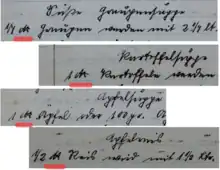 Süße Graupensuppe
1/4 ℔ Graupen werden mit 2 1/2 lt.
Kartoffelsuppe
1 ℔ Kartoffeln werden
Apfelsuppe
1 ℔ Äpfel oder 100 gr.
Apfelreis
1/2 ℔ Reis wird mit 1 1/2 ltr.